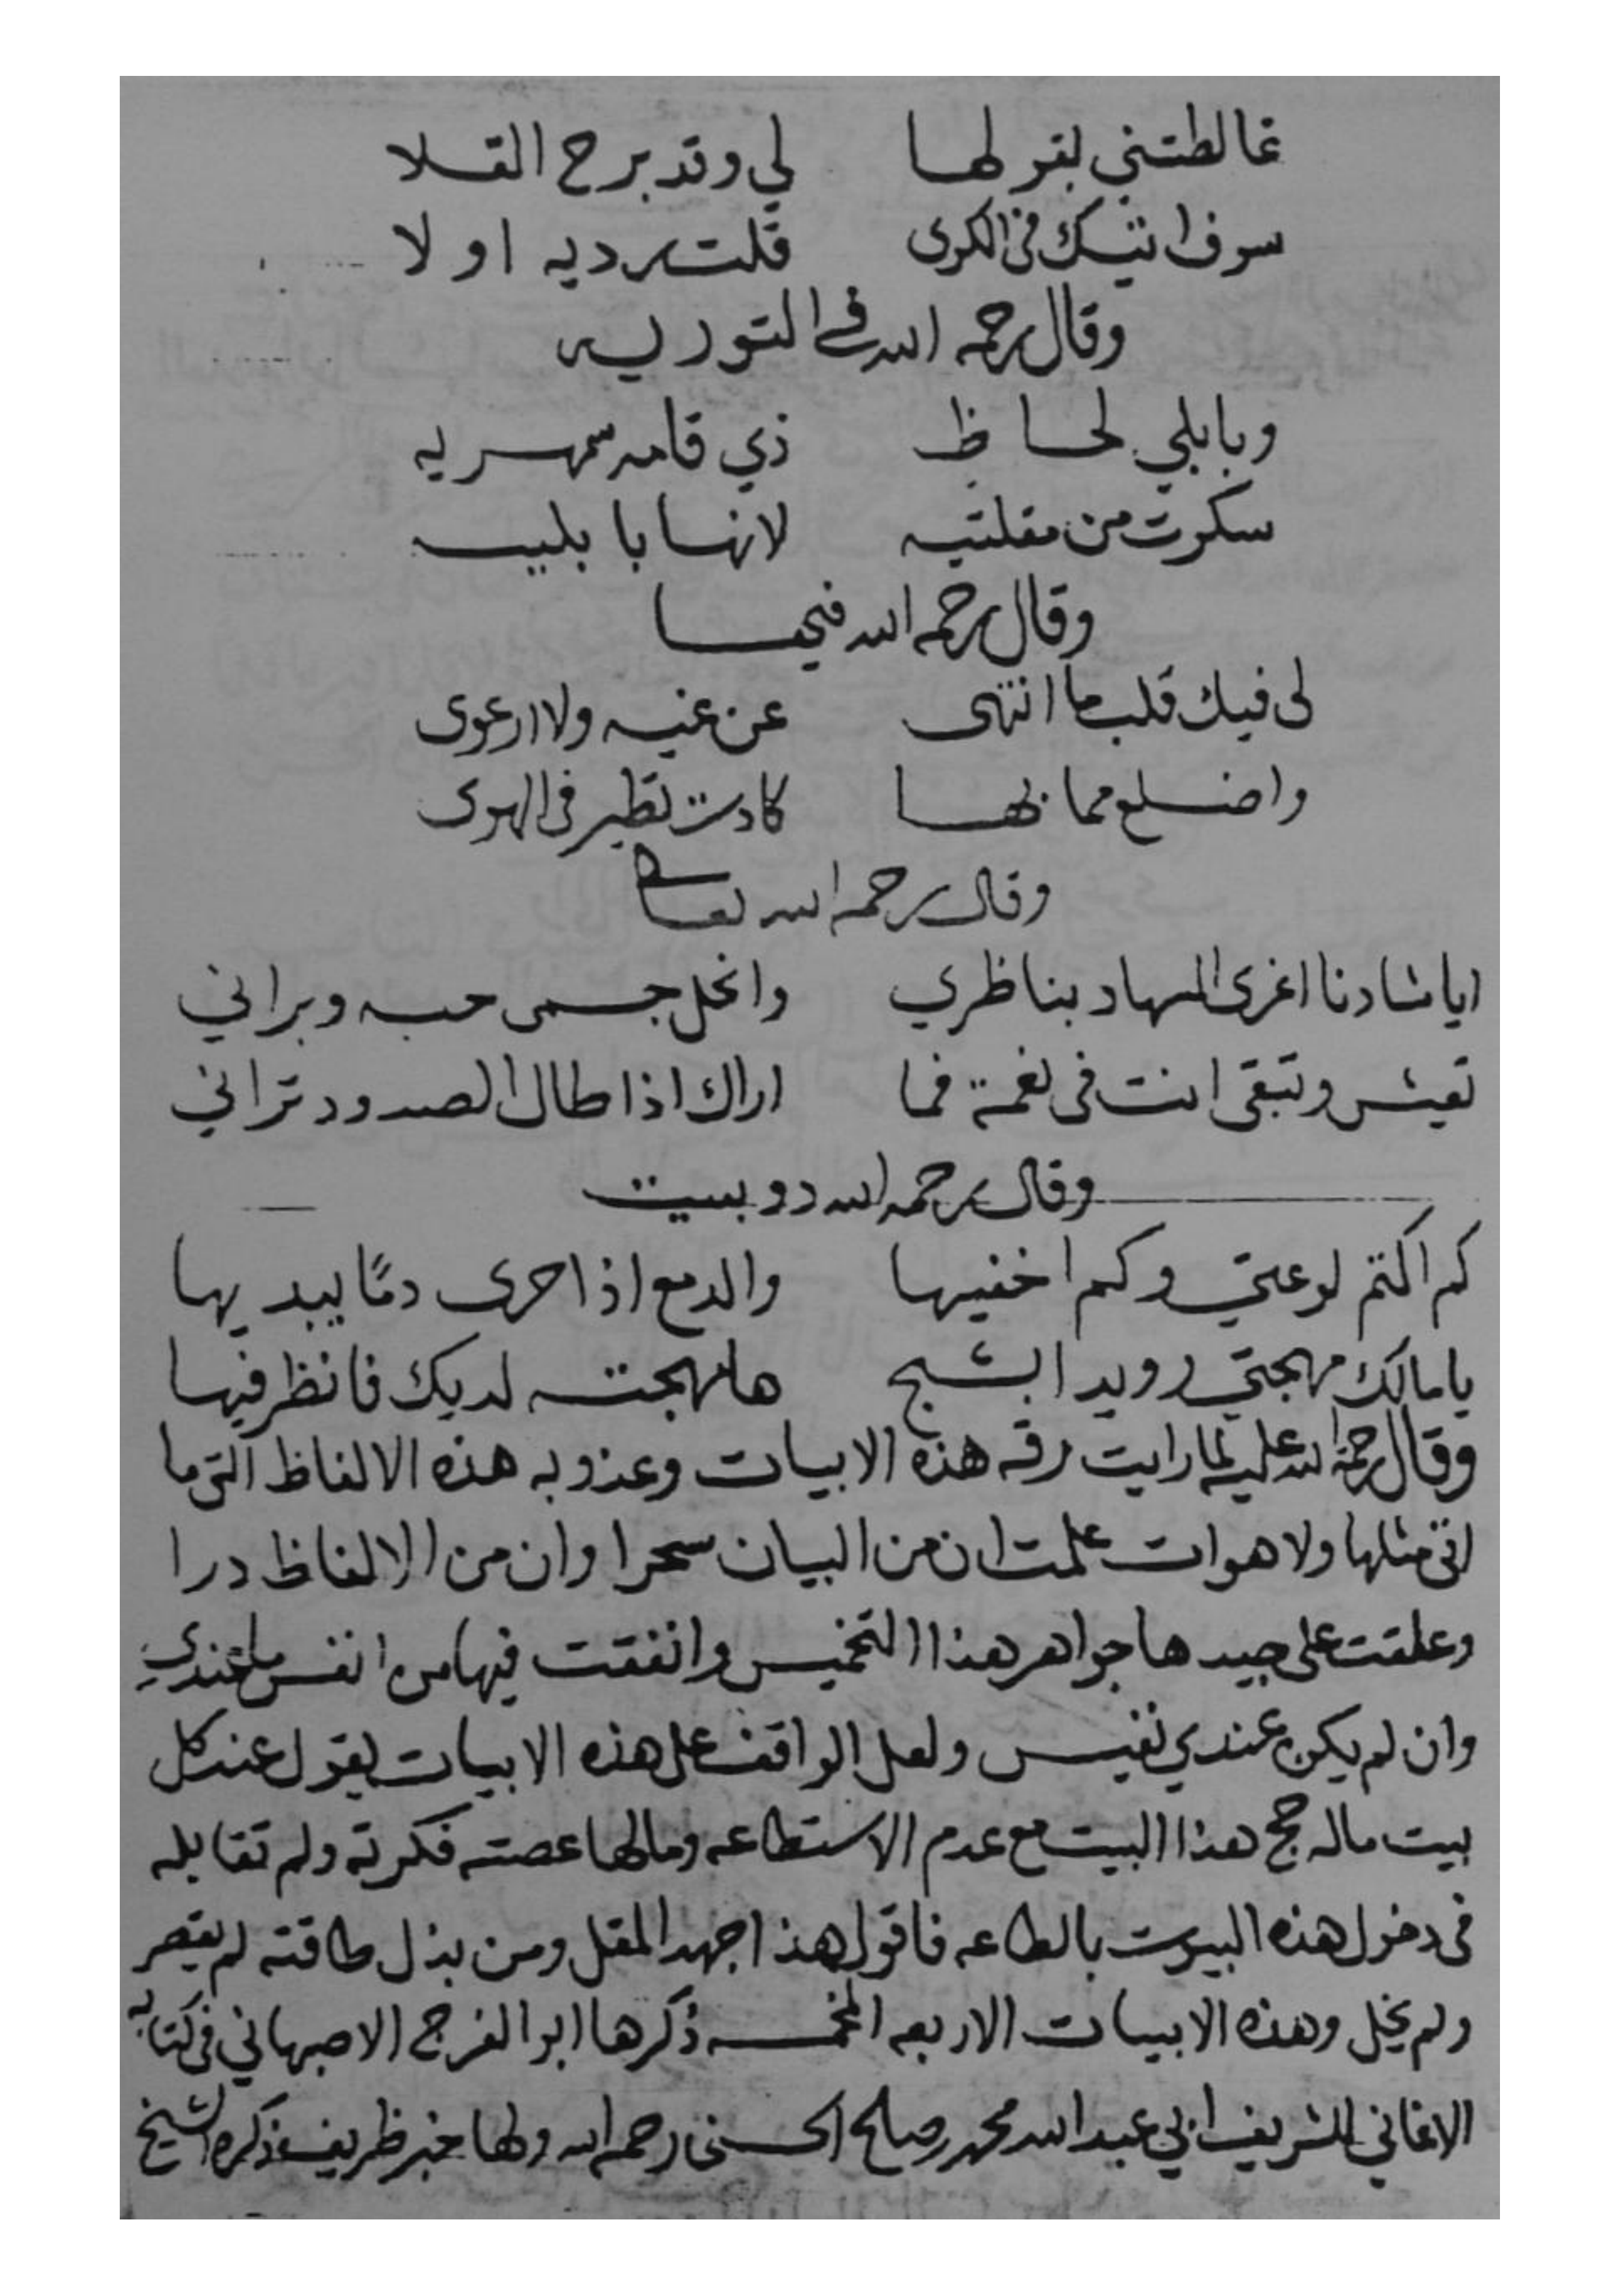 غالطتني بقولها لي وقد برح القلا
سوف اتيك في الكرى قلت رديه اولا
وقال رحمه الله في التوريه
وبابلي لحاظ ذي قامه سمهريه
سكرت من مقلتيه لانها بابليه
وقال رحمه الله
لى فيك قلب ما انتهى عن غيه ولا ارعوى
واضلع مما بها كادت تطير فى الهوى
وقال رحمه الله تعالى
ايا شادنا اغرى السهاد بناظري وانحل جسمى حبه وبراني
تعيش وتبقى انت فى نعمة فما اراك اذا طال الصدود تراني
وقال رحمه الله دوبيت
كم اكتم لوعتي وكم اخفيها والدمع اذا جرى دمًا يبديها
يا مالك مهجتي رويدا بشج ها مهجته لديك فانظر فيها
وقال رحمة الله عليه لما رايت رقه هذه الابيات وعذوبه هذه الالفاظ التى ما
اتى مثلها ولا هو ات علمت ان من البيان سحرا وان من الالفاظ درا
وعلقت على جيدها جواهر هذا التخميس وانفقت فيها من انفس ما عندي
وان لم يكن عندي نفيس ولعل الواقف على هذه الابيات يقول عند كل
بيت ماله حج هذا البيت مع عدم الاستطاعه ومالها عصته فكرته ولم تقابله
فى دخول هذه البيوت بالطاعه فاقول هذا جهد المقل ومن بذل طاقته لم يقصر
ولم يخل وهذه الابيات الاربعه المخمسه ذكرها ابو الفرج الاصبهاني فى كتابه
الاغاني للشريف ابي عبد الله محمد صالح الحسنى رحمه الله ولها خبر ظريف ذكره الشيخ